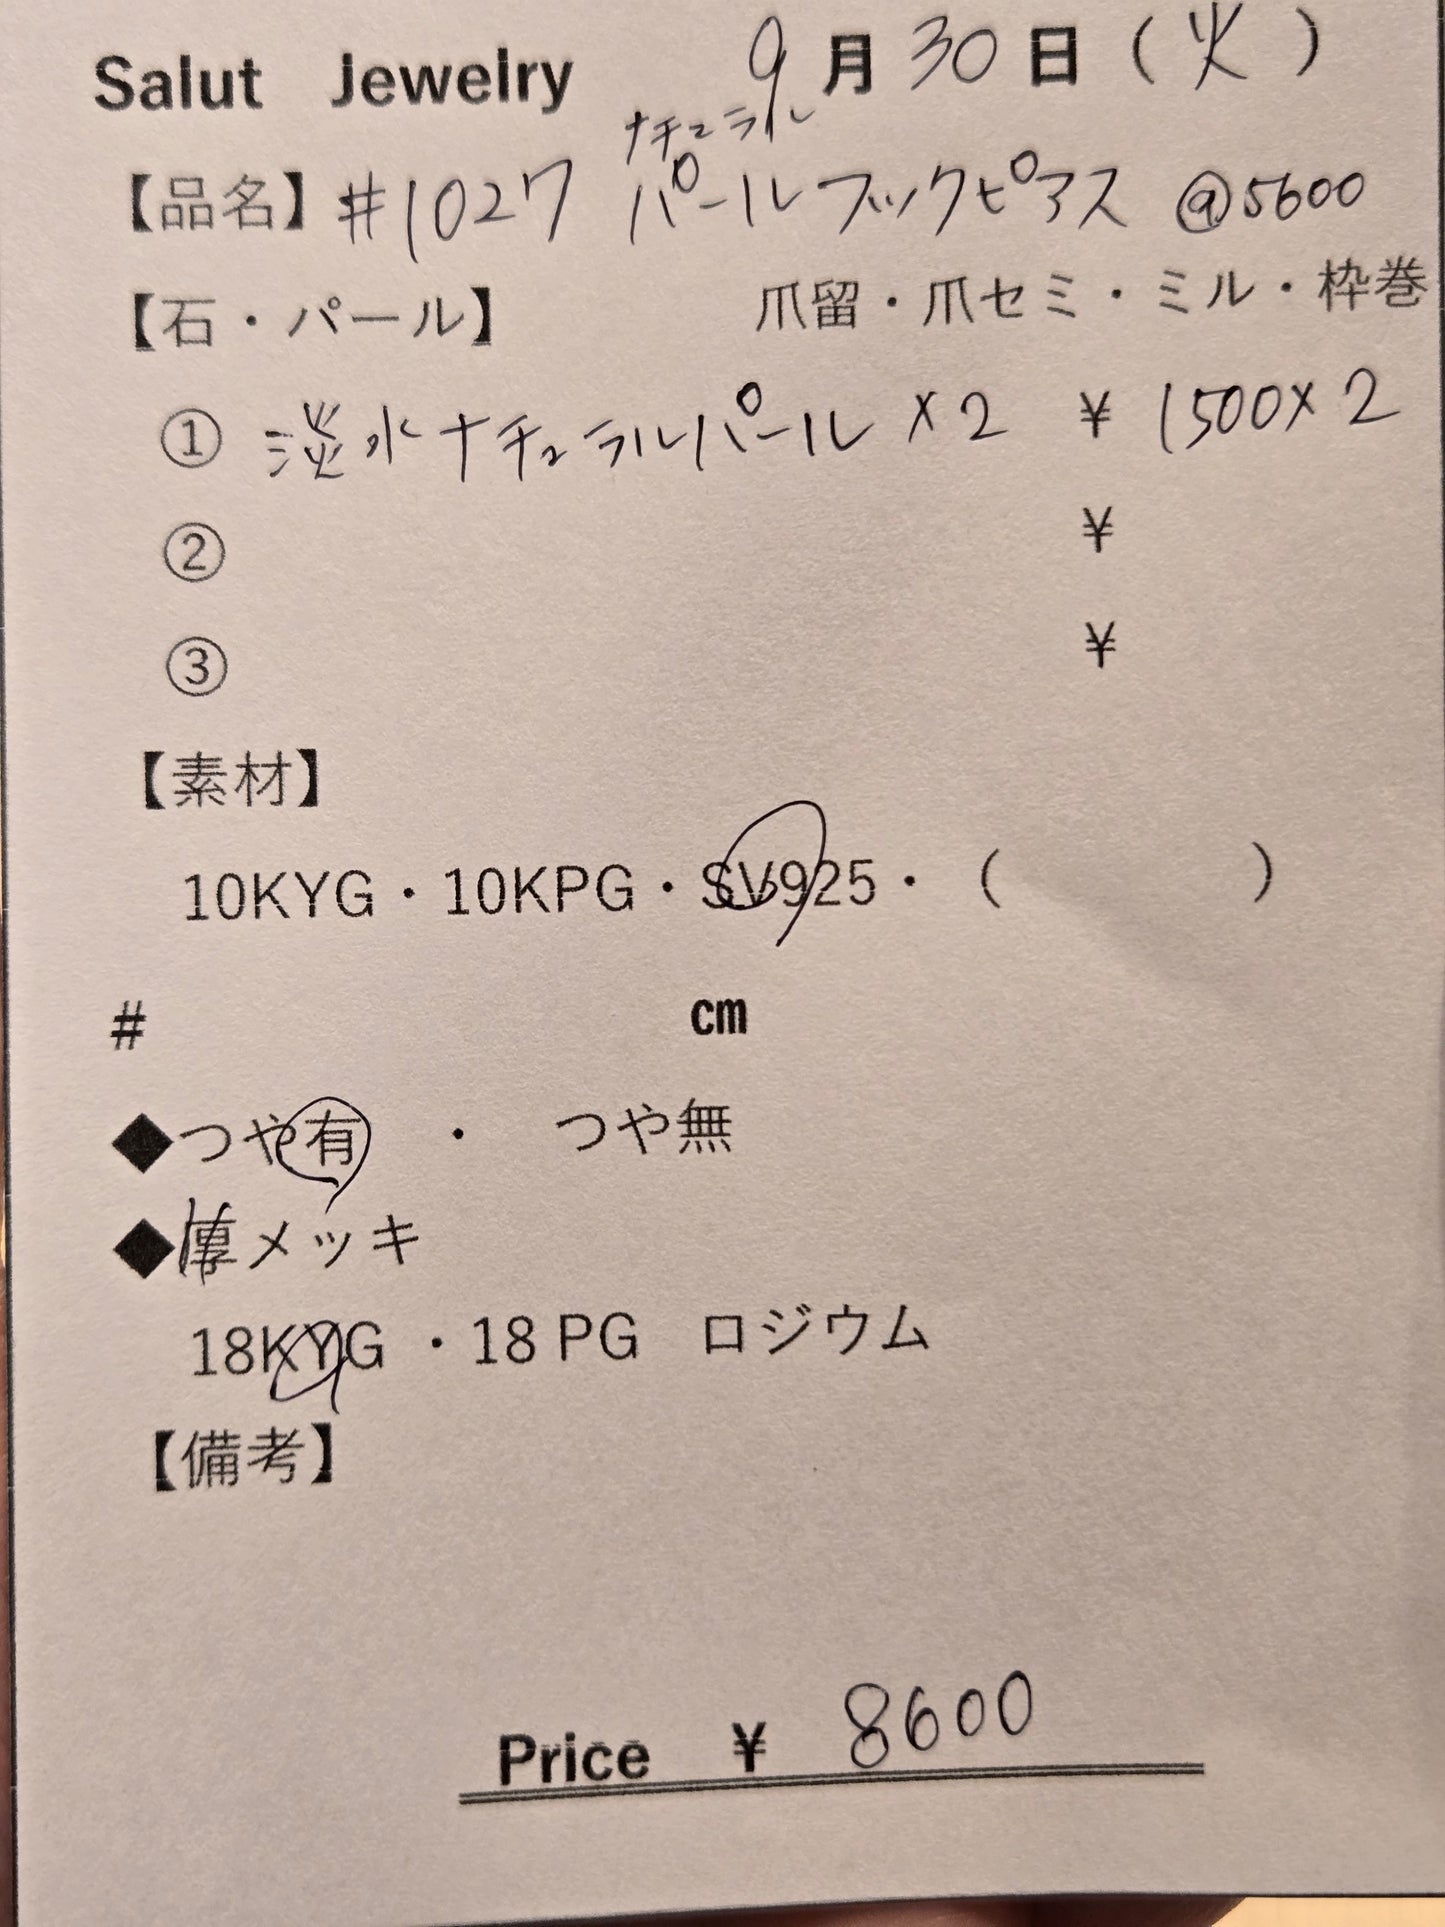 Salut Jewelry 9月30日(火)
ナチュラル
【品名】#1027 パールフックピアス @5600
【石・パール】 爪留・爪セミ・ミル・枠巻
① 淡水ナチュラルパール×2 ¥ 1500×2
② ¥
③ ¥
【素材】
10KYG・10KPG・SV925・( )
# cm
◆つや有 ・ つや無
◆厚メッキ
18KYG ・18 PG ロジウム
【備考】
Price ¥ 8600